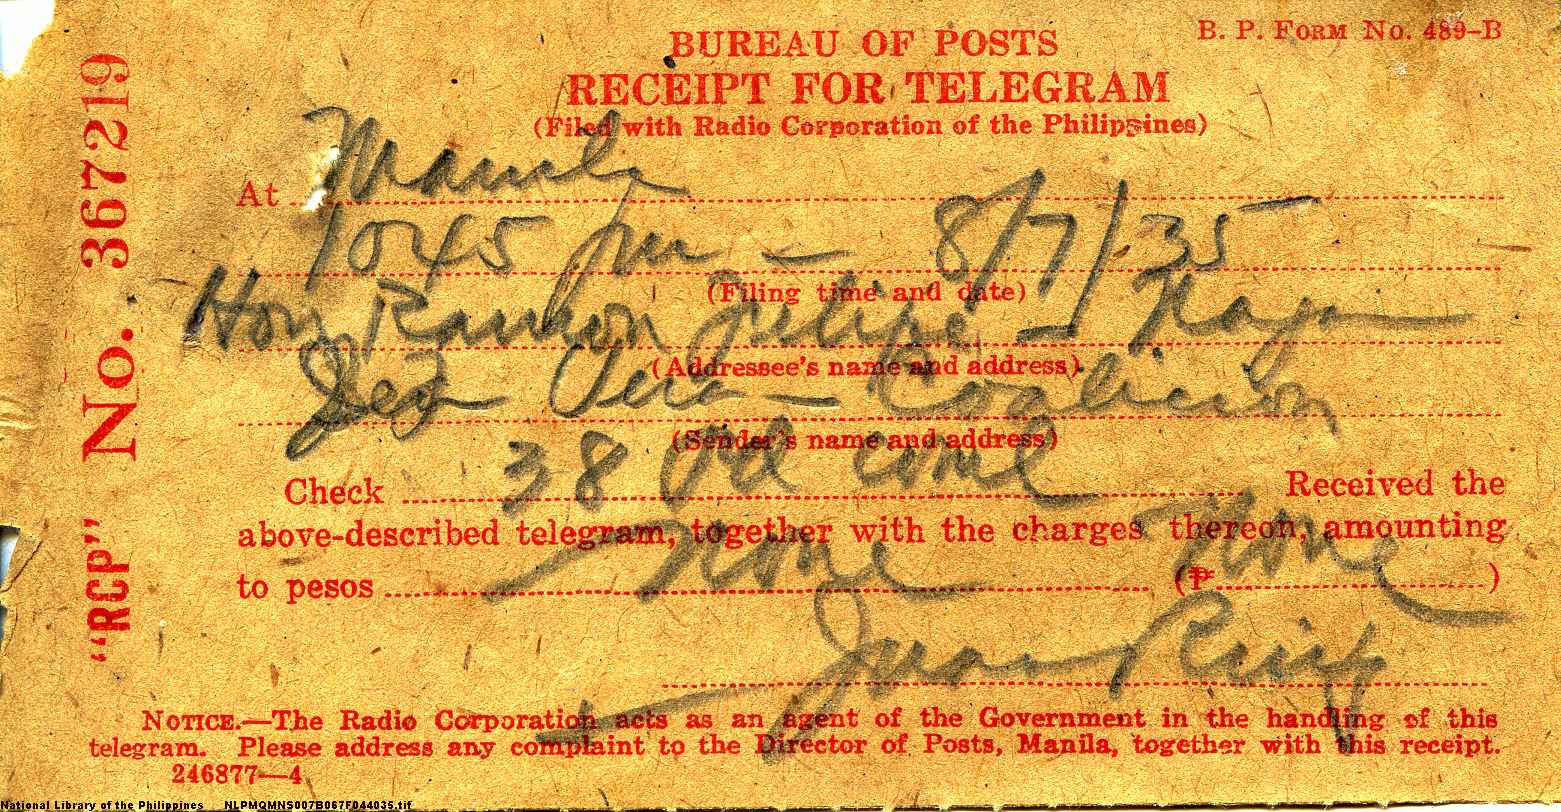 B. P. FORM NO. 489-B
BUREAU OF POSTS
RECEIPT FOR TELEGRAM
(Filed with Radio Corporation of the Philippines)
"RCP" No. 367219
At Manila
1045 pm - 8/7/35
(Filing time and date)
Hon Ramon Felipe - Naga
(Addressee's name and address)
Vera - Coalicion
(Sender's name and address)
Check 38 Pd Coml Received the
above-described telegram, together with the charges thereon, amounting
to pesos - None (₱ None)
Juan Ruiz
NOTICE.—The Radio Corporation acts as an agent of the Government in the handling of this
telegram. Please address any complaint to the Director of Posts, Manila, together with this receipt.
246877—4
National Library of the Philippines NLPMQMNS007B067F044035.tif